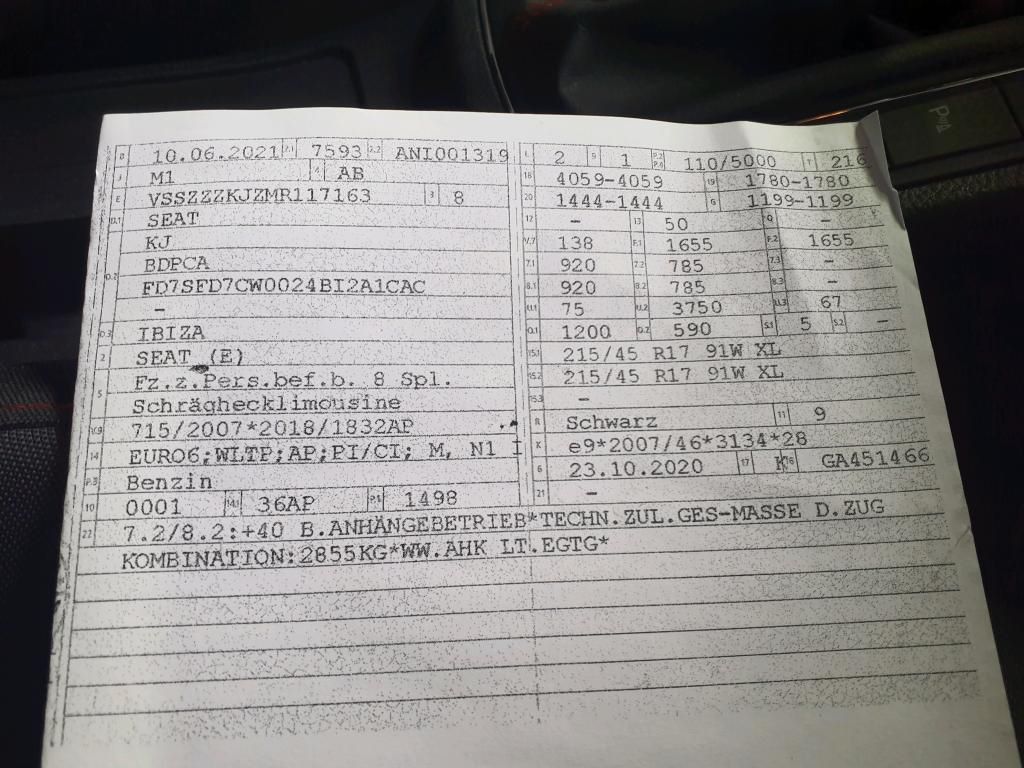 B 10.06.2021 2.1 7593 2.2 ANI001319
J M1 4 AB
E VSSZZZKJZMR117163 3 8
D.1 SEAT
KJ
D.2 BDPCA
FD7SFD7CW0024BI2A1CAC
-
D.3 IBIZA
2 SEAT (E)
5 Fz.z.Pers.bef.b. 8 Spl.
Schräghecklimousine
V.9 715/2007*2018/1832AP
14 EURO6;WLTP;AP;PI/CI; M, N1 I
P.3 Benzin
10 0001 14.1 36AP P.1 1498
L 2 9 1 P.2 P.4 110/5000 T 216
18 4059-4059 19 1780-1780
20 1444-1444 G 1199-1199
12 - 13 50 Q -
V.7 138 F.1 1655 F.2 1655
7.1 920 7.2 785 7.3 -
8.1 920 8.2 785 8.3 -
U.1 75 U.2 3750 U.3 67
O.1 1200 O.2 590 S.1 5 S.2 -
15.1 215/45 R17 91W XL
15.2 215/45 R17 91W XL
15.3 -
R Schwarz 11 9
K e9*2007/46*3134*28
6 23.10.2020 17 K 16 GA451466
21 -
22 7.2/8.2:+40 B.ANHÄNGEBETRIEB*TECHN.ZUL.GES-MASSE D.ZUG
KOMBINATION:2855KG*WW.AHK LT.EGTG*